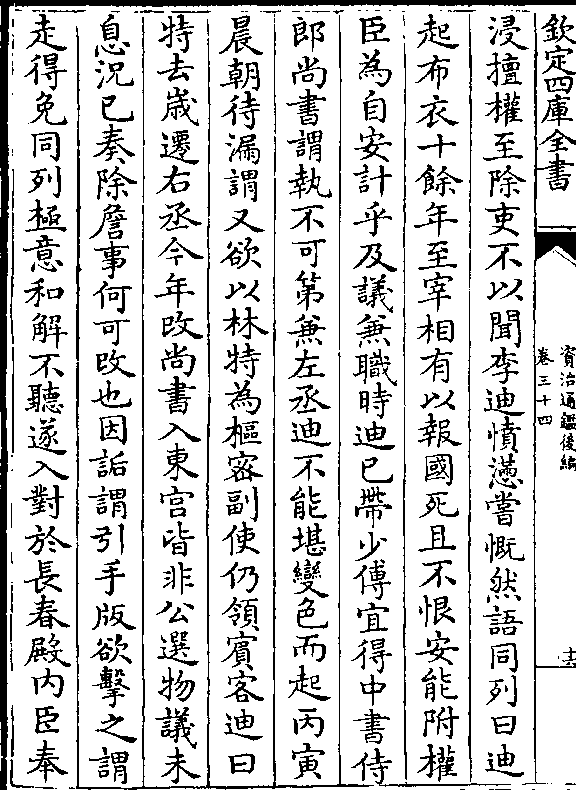 欽定四庫全書
資治通鑑後編
卷三十四
十六
浸擅權至除吏不以聞李迪憤懣嘗慨然語同列曰迪
起布衣十餘年至宰相有以報國死且不恨安能附權
臣為自安計乎及議兼職時迪已帶少傅宜得中書侍
郎尚書謂執不可第兼左丞迪不能堪變色而起丙寅
晨朝待漏謂又欲以林特為樞密副使仍領賓客迪曰
特去歲遷右丞今年改尚書入東宫皆非公選物議未
息況已奏除詹事何可改也因詬謂引手版欲擊之謂
走得免同列極意和解不聽遂入對於長春殿内臣奉